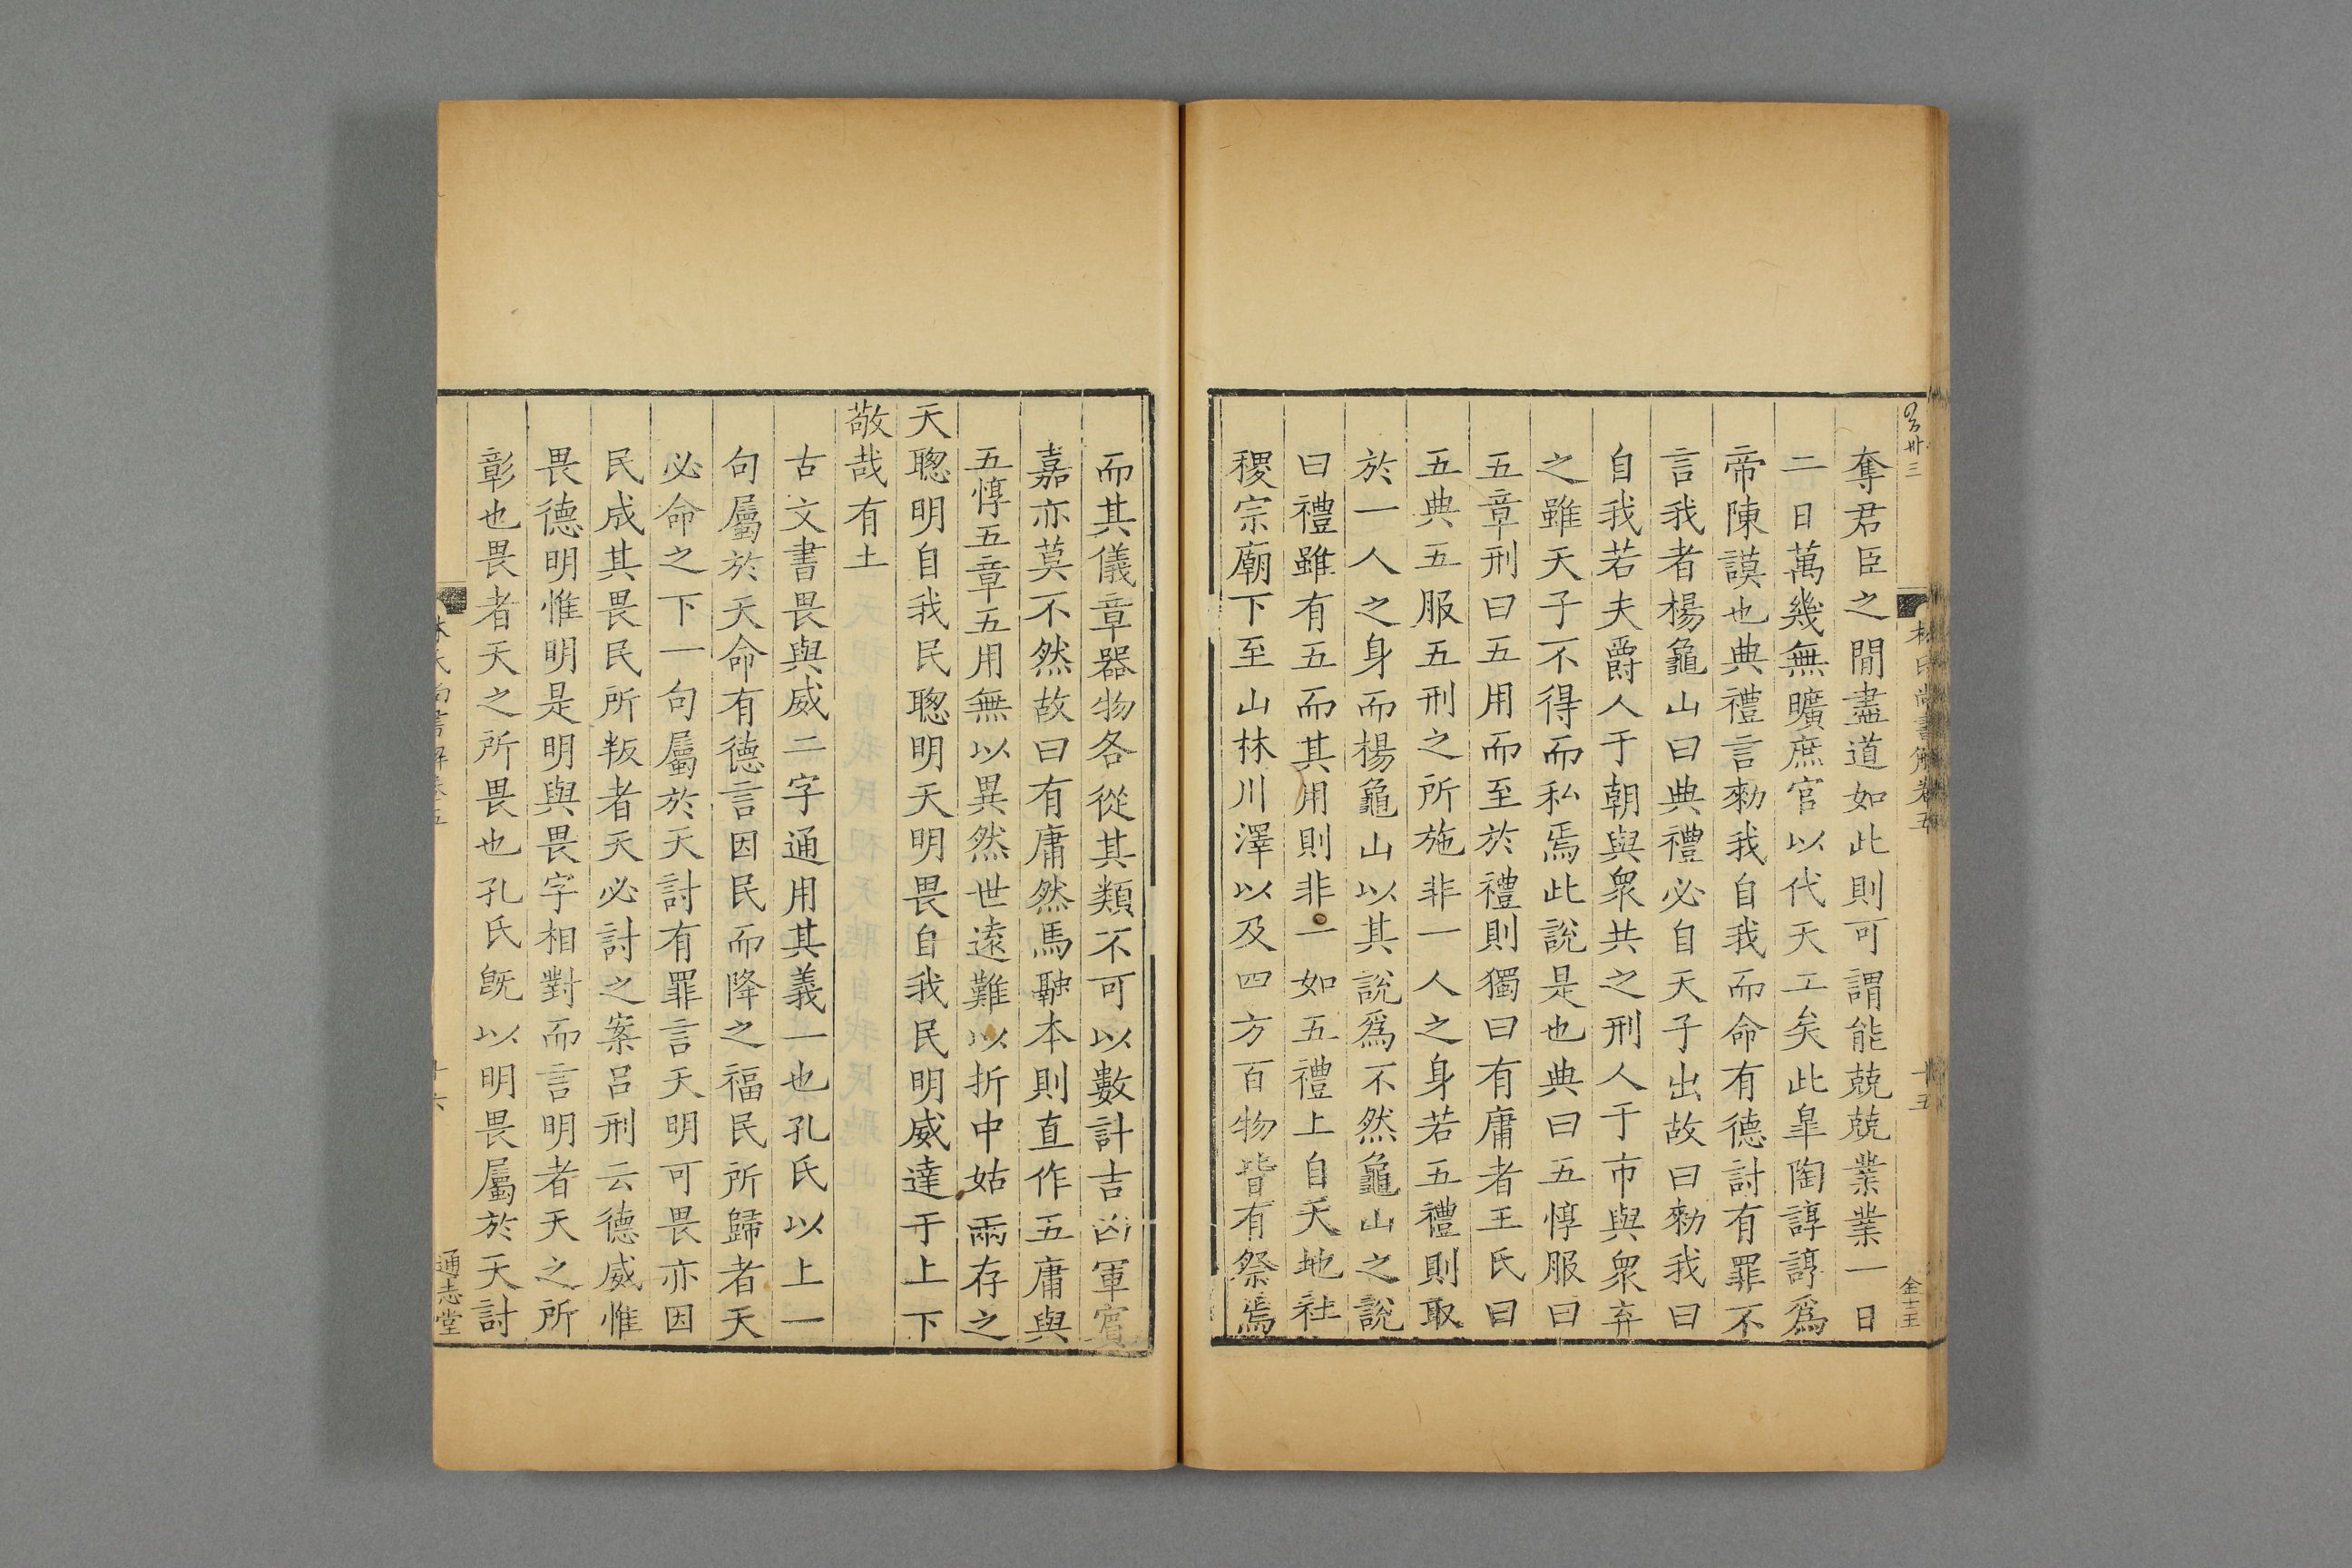 林氏尚書解卷五
十五
奪君臣之閒盡道如此則可謂能兢兢業業一日
二日萬幾無曠庶官以代天工矣此臯陶諄諄爲
帝陳謨也典禮言勑我自我而命有德討有罪不
言我者楊龜山曰典禮必自天子出故曰勑我曰
自我若夫爵人于朝與衆共之刑人于市與衆弃
之雖天子不得而私焉此說是也典曰五惇服曰
五章刑曰五用而至於禮則獨曰有庸者王氏曰
五典五服五刑之所施非一人之身若五禮則取
於一人之身而楊龜山以其說爲不然龜山之說
曰禮雖有五而其用則非一如五禮上自天地社
稷宗廟下至山林川澤以及四方百物皆有祭焉
而其儀章器物各從其類不可以數計吉凶軍賓
嘉亦莫不然故曰有庸然馬融本則直作五庸與
五惇五章五用無以異然世逺難以折中姑兩存之
天聦明自我民聦明天明畏自我民明威達于上下
敬哉有土
古文書畏與威二字通用其義一也孔氏以上一
句屬於天命有德言因民而降之福民所歸者天
必命之下一句屬於天討有罪言天明可畏亦因
民成其畏民所叛者天必討之案呂刑云德威惟
畏德明惟明是明與畏字相對而言明者天之所
彰也畏者天之所畏也孔氏旣以明畏屬於天討
林氏尚書解卷五
十六
通志堂